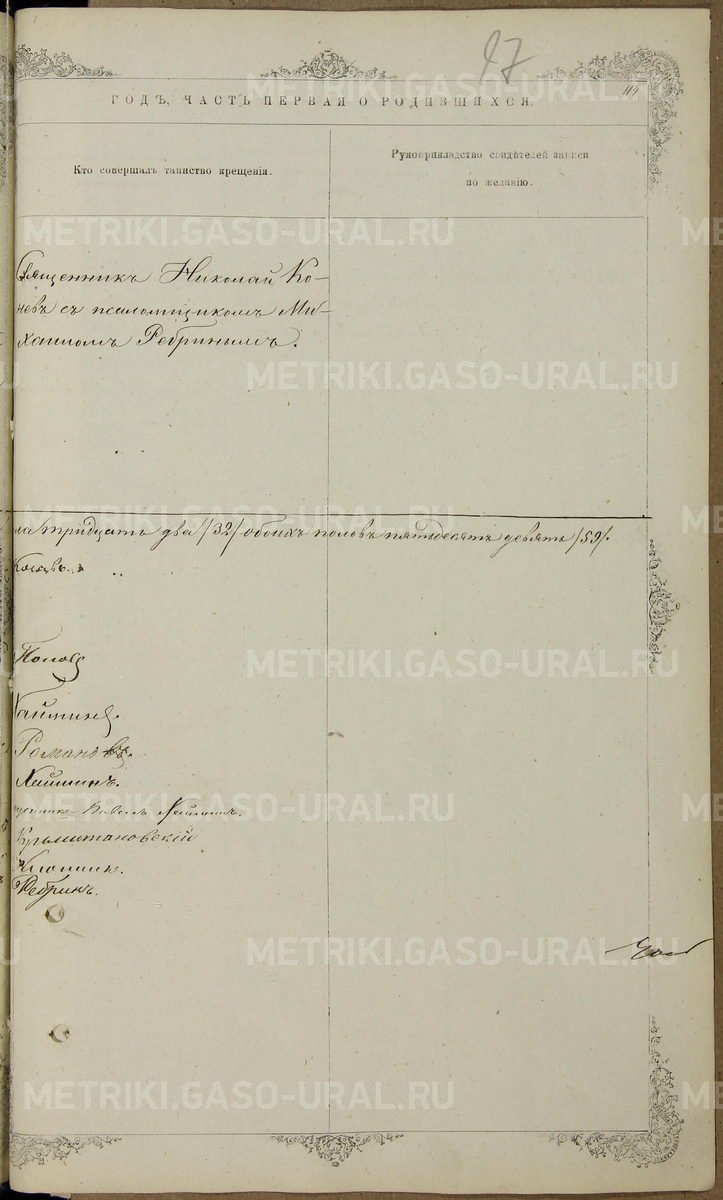 97
114
ГОДЪ, ЧАСТЬ ПЕРВАЯ О РОДИВШИХСЯ.
Кто совершалъ таинство крещенія.
Рукоприкладство свидѣтелей записи
по желанію.
Священникъ Николай Ко-
невъ съ псаломщикомъ Ми-
хаиломъ Ребринымъ.
ла тридцать два /32/ обоихъ половъ пятьдесятъ девять /59/.
Поповъ
Романовъ.
Хайминъ.
Павелъ
Крымшановскій
Ребринъ.
METRIKI.GASO-URAL.RU